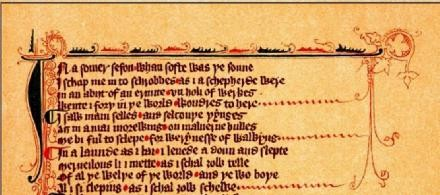 N a somer seson whan softe was þe sonne
I schop me in to schrobbes as i a schepherde were
In an abit of an ermite vn holi of werkes
Wente i forþ in þe world wondres to here
I saw mani selles and selcouþe þynges
As in a mai morwening on maluerne hulles
Me bi ful to slepe for werynesse of walkyng
In a launde as i lai lenede a doun and slepte
merueilous li i mette as i schal ȝow telle
Of al þe welþe of þe world and þe wo boþe
sleping as i schal ȝow schewe